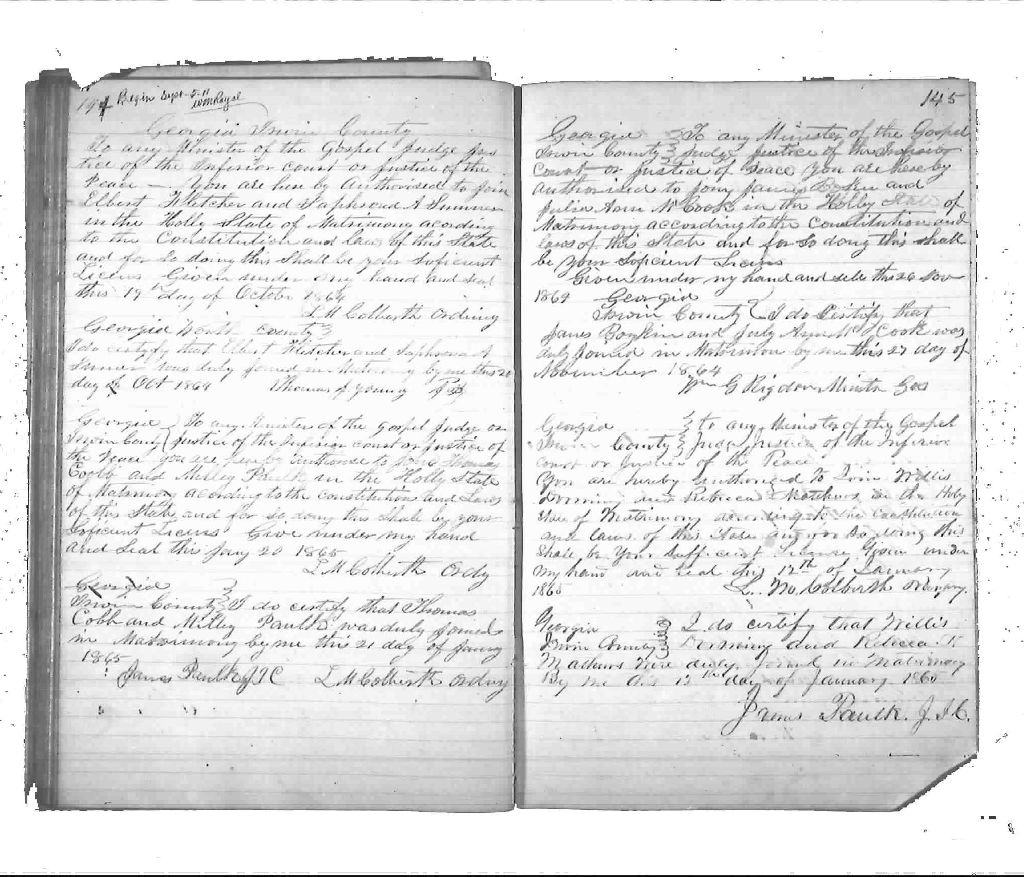 144 Begin Sept 5-11
Wm Royal
Georgia Irwin County
To any Minister of the Gospel Judge Jus
tice of the Inferior court or Justice of the
Peace — You are here by Authorised to join
Elbert Fletcher and Saphrona A Sumner
in the Holly State of Matrimony acording
to the Constitution and laws of this State
and for so doing this Shall be your Soficient
Licens Given under my hand and seal
this 19 day of October 1864
L M Colberth Ordiny
Georgia county
I do certify that Elbert Fletcher and Saphrona A
Sumner was duly joined in Matrimony by me this 20
day of Oct 1864 Thomas J Young
Georgia To any Minister of the Gospel Judge or
Irwin Couny Justice of the Inferior court or Justice of
the Peace you are here by Authorise to Thomas
Cobb and Milley Paulk in the Holly State
of Matrimony acording to the constitution and Laws
of this State and for so doing this Shall by your
Soficient Licens Give under my hand
and Seal this Jany 20 1865
L M Colberth Ordy
Georgia
Irwin County I do certify that Thomas
Cobb and Milley Paulk was duly joined
in Matrimony by me this 21 day of Janury
1865
James Paulk J I C L M Colberth Ordny
145
Georgia To any Minister of the Gospel
Irwin County Judge Justice of the Inferior
Court or Justice of Peace You are here by
authorised to jony James and
Julia Ann McCook in the Holly State of
Matrimony according to the Constitution and
laws of this State and for so doing this shall
be your Soficient Licens
Given under my hand and sele this 26 Nov
1864 Georgia
Irwin County I do Certify that
James and July Ann McCook was
duly joined in by me this 27 day of
November 1864
Wm G Rigdon Minstr Gos
Georgia to any Minister of the Gospel
Irwin County Judge Justice of the Inferior
court or Justice of the Peace
You are hereby Authorised to Join Willis
Dorminy and Rebecca Mathews in the Holy
State of Matrimony according to the Constitution
and laws of this State and for So doing this
Shall be Your Sufficient License Given under
my hand and Seal this 12th of January
1865 L. M. Colberth Ordinary.
Georgia I do certify that Willis
Irwin County Dorminy and Rebecca
Mathews were duly Joined in Matrimony
By me this 13th day of January 1865
James Paulk. J. I. C.